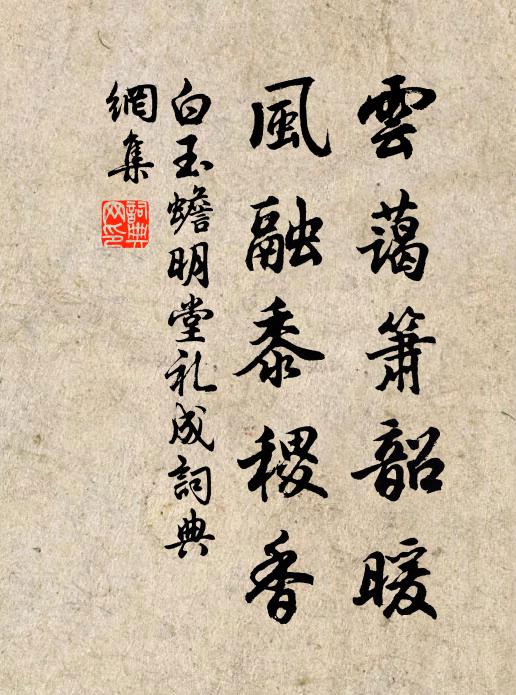 雲藹簫韶暖
風融黍稷香
白玉蟾明堂礼成詞典
網集
詞典
网印